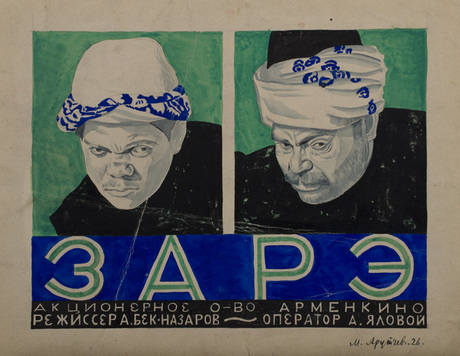 ЗАРЭ
АКЦИОНЕРНОЕ О-ВО АРМЕНКИНО
РЕЖИССЕР А. БЕК-НАЗАРОВ — ОПЕРАТОР А. ЯЛОВОЙ